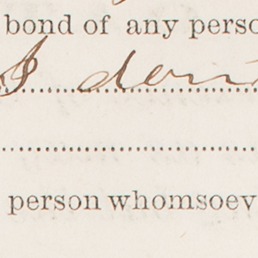 bond of any perso
I don
person whomsoev